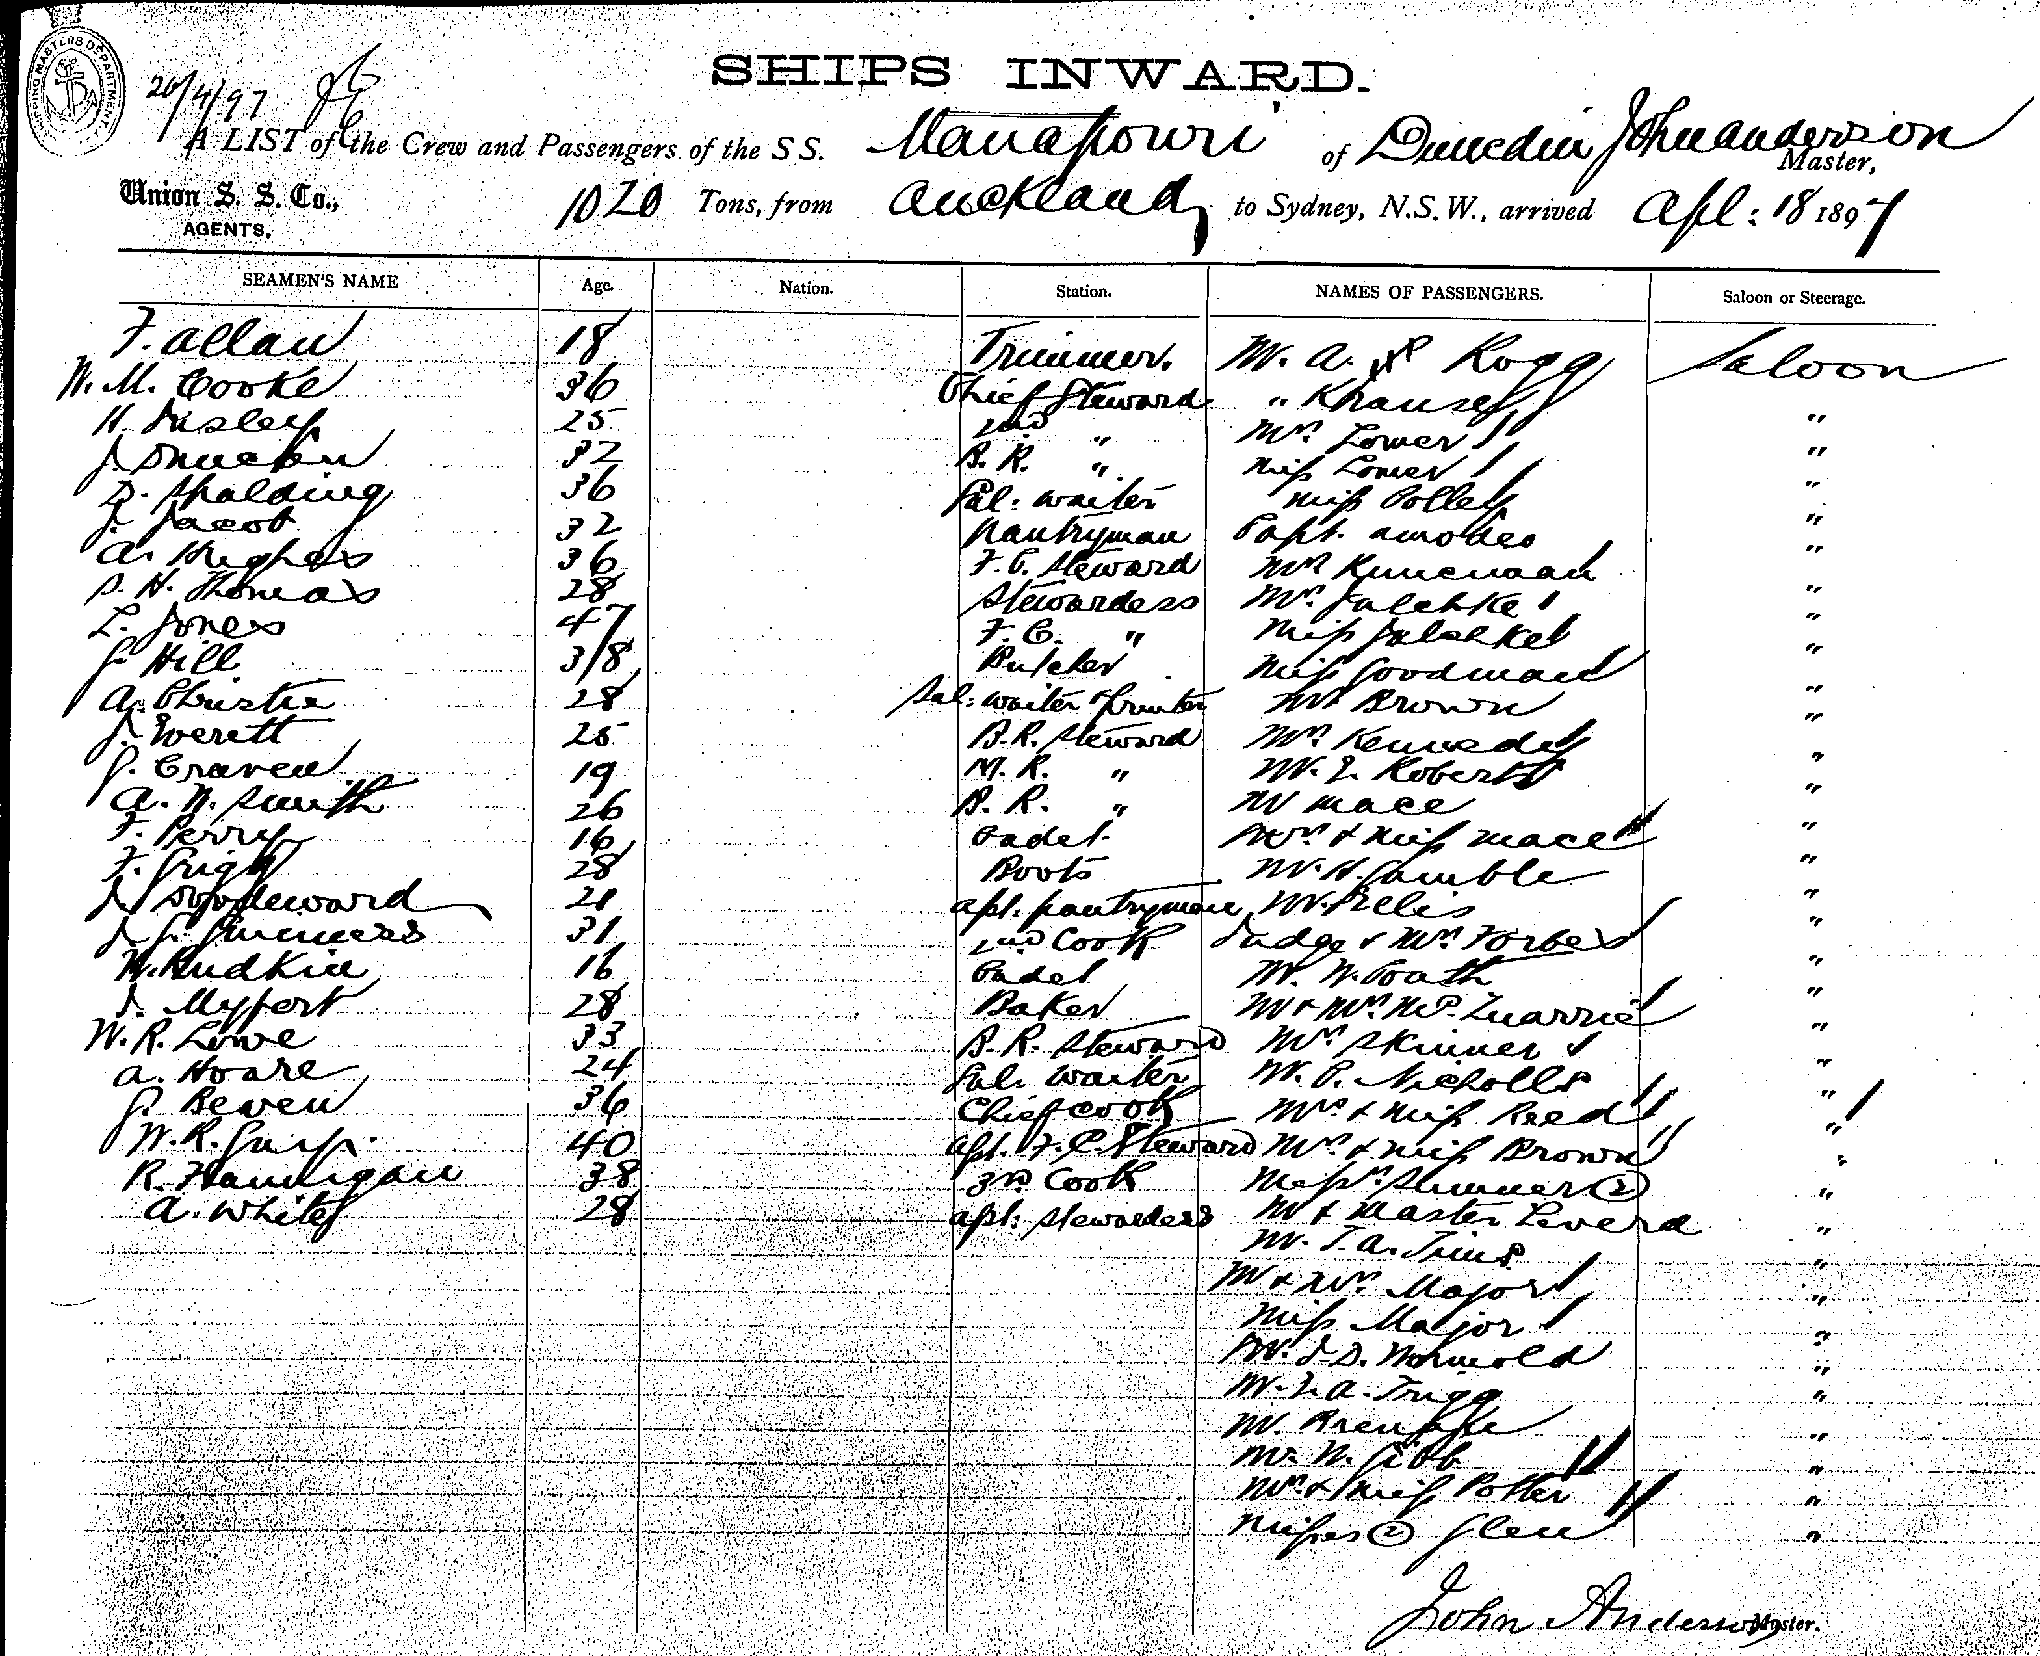 SHIPPING MASTERS DEPARTMENT
20/4/97
SHIPS INWARD.
A LIST of the Crew and Passengers of the S S. Manapouri of Dunedin John Anderson Master,
Union S. S. Co., AGENTS. 1020 Tons, from Auckland to Sydney, N.S.W., arrived Apl: 18 1897
SEAMEN'S NAME Age. Nation. Station. NAMES OF PASSENGERS. Saloon or Steerage.
F. Allan 18 Trimmer. Mr. A. Rogg Saloon
W. M. Cooke 36 Chief Steward " "
H. Insley 25 2nd " Mrs Lower "
J. Duncan 32 B. R. " Miss Lower "
D. Spalding 36 Sal: waiter Miss Polley "
J. Jacob 32 Pantryman Capt. Amodeo "
A. Hughes 36 F. C. Steward Mrs "
S. H. Thomas 28 Stewardess Mrs "
L. Jones 47 F. C. " Miss "
G. Hill 3/8 Butcher Miss Goodman "
A. Christie 28 Sal: waiter & printer Mr Brown "
J. Everett 25 B.R. Steward Mrs Kennedy "
G. Craven 19 M. R. " Mr. E. Roberts "
A. W. Smith 26 B. R. " Mr Mace "
F. Perry 16 Cadet Mrs & Miss Mace "
F. Grigg 28 Boots Mr. H. Gamble "
J. Woodward 21 Apt. pantryman Mr. Ellis "
J. G. Guinness 31 2nd Cook Judge & Mrs Forbes "
W. Rudkin 16 Cadet Mr. W. Coath "
J. 28 Baker Mr & Mrs McQuarrie "
W. R. Lowe 33 B. R. Steward Mrs Skinner "
A. Hoare 24 Sal. Waiter Mr. P. Nicholls "
G. Beven 36 Chief Cook Mrs & Miss Reed "
W. R. 40 Apt. F. C. Steward Mrs & Miss Brown "
R. Hannigan 38 3rd Cook Messrs Sumner (2) "
A. White 28 Apt: Stewardess Mr & Master Leverd "
Mr. T. A. Tims "
Mr & Mrs Major "
Miss Major "
Mr. J. D. Wormold "
Mr. L. A. Trigg "
Mr. "
Mr. W. Gibb "
Mrs & Miss Potter "
Misses (2) Glen "
John Anderson Master.